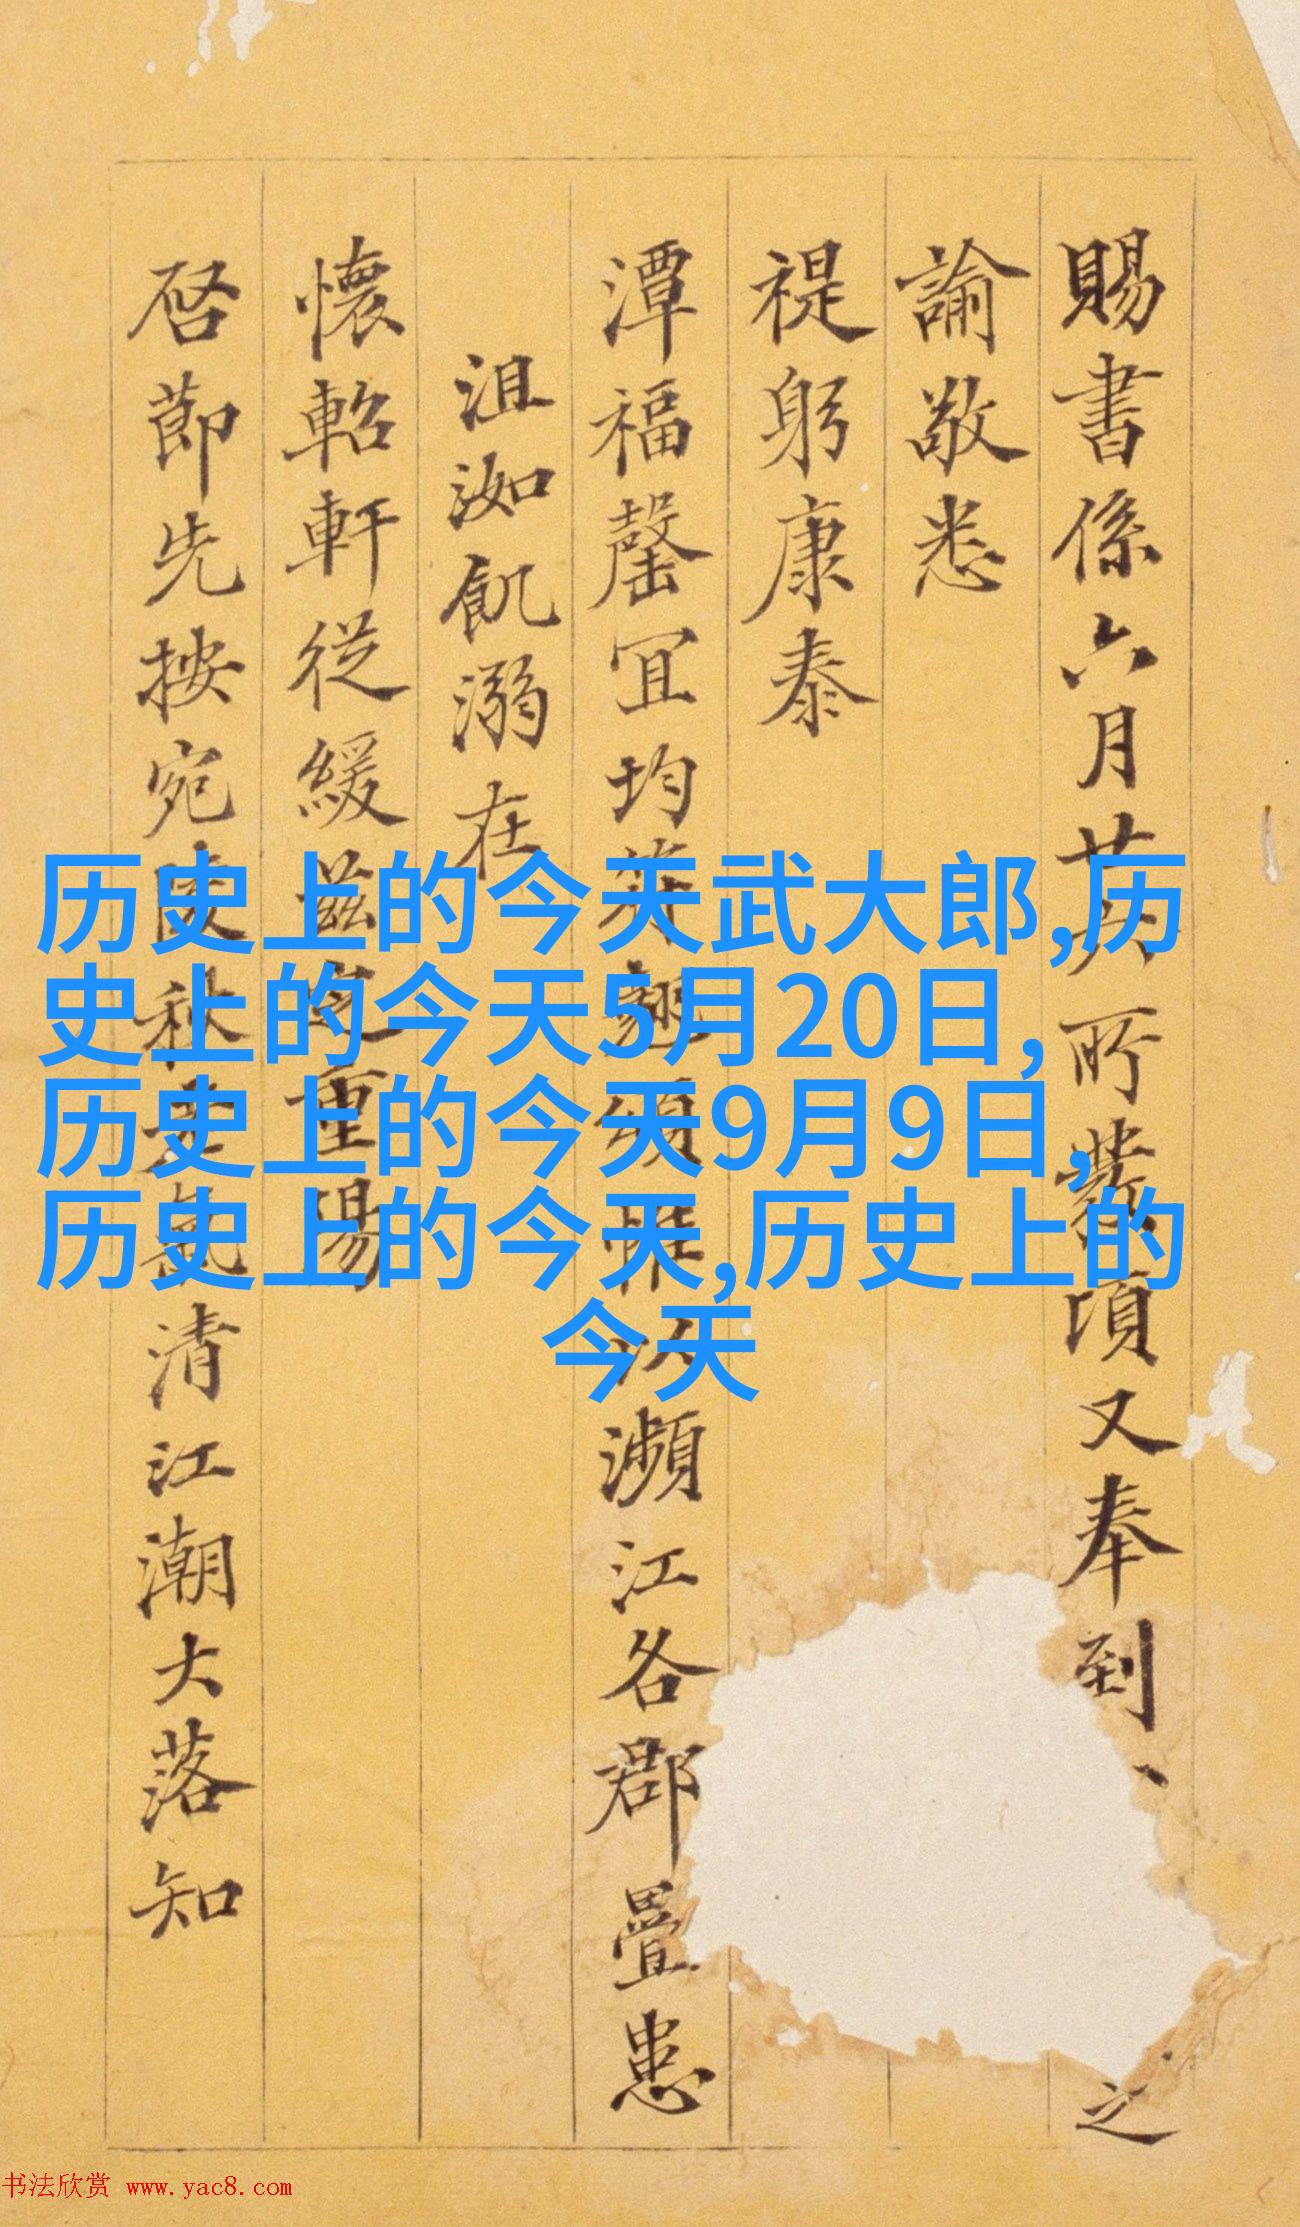 賜書係六月英所發頃又奉到
之
諭敬悉
禔躬康泰
潭福罄宜均
瀕江各郡疊患
沮洳飢溺在
懷軺軒從緩茲定重陽
啓節先按宛陵秋
清江潮大落知
历史上的今天武大郎,历
史上的今天5月20日,
历史上的今天9月9日,
历史上的今天,历史上的
今天
书法欣赏 www.yac8.com